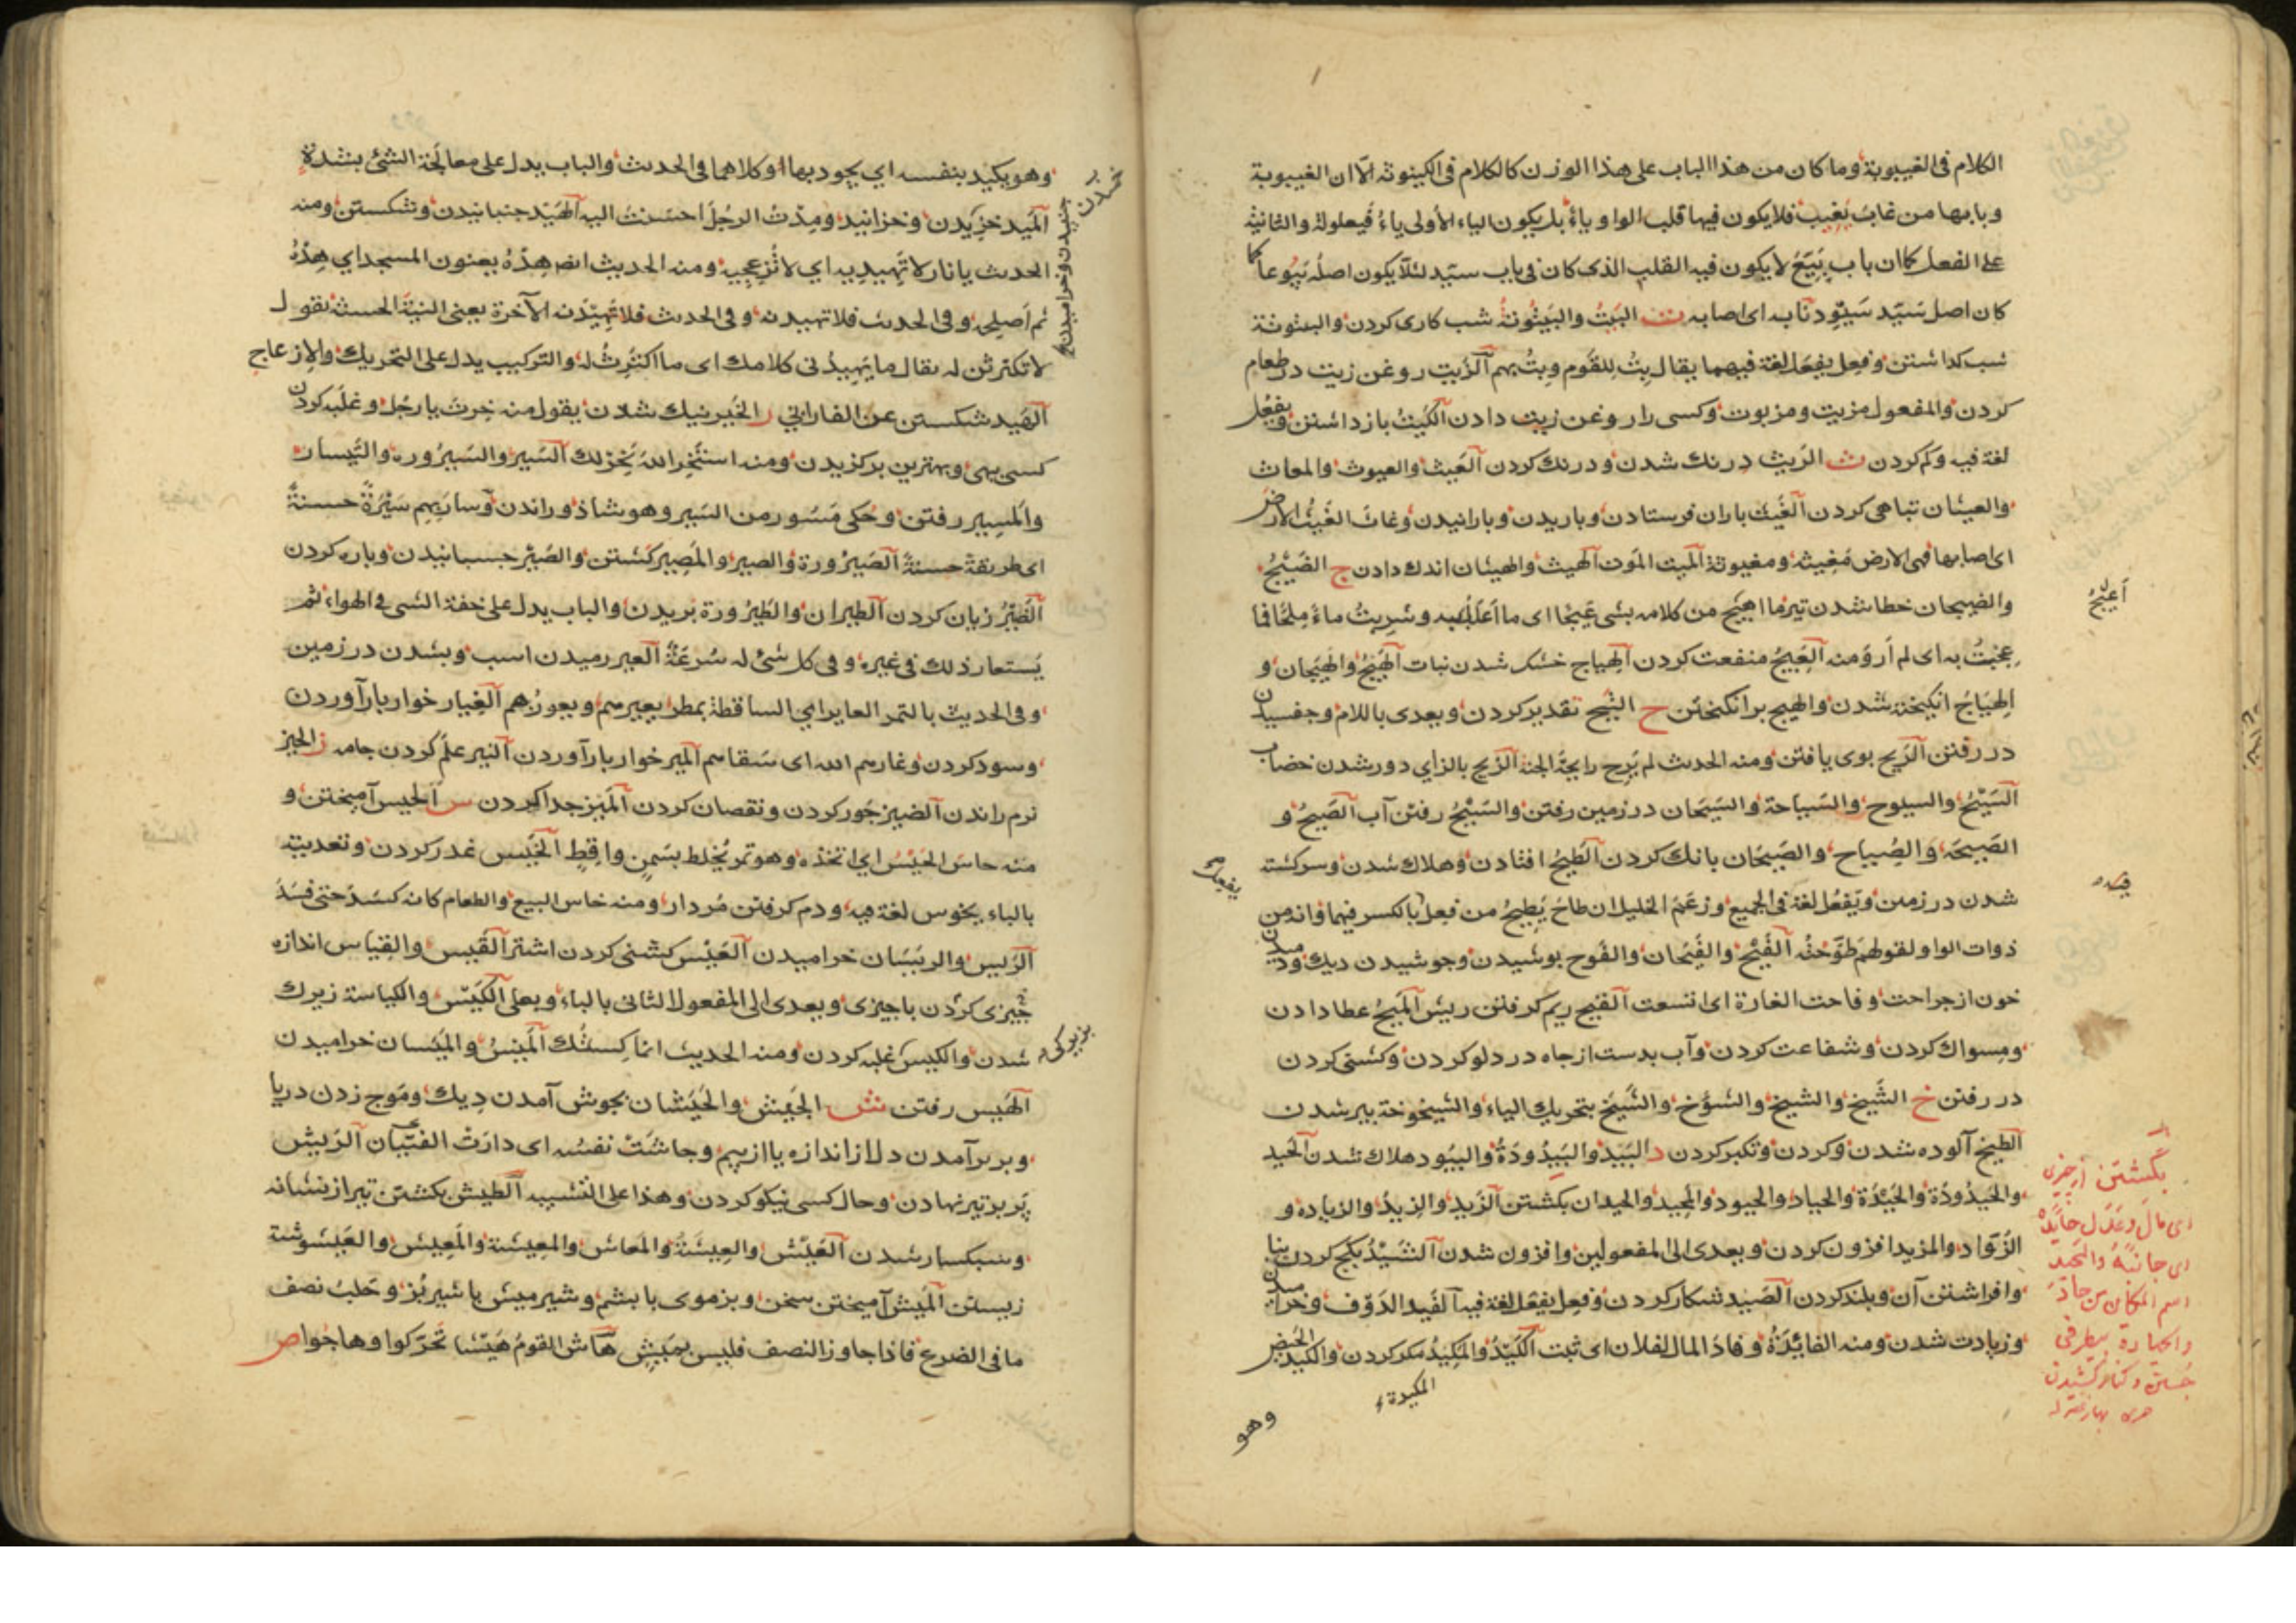 الكلام فى الغيبوبة وما كان من هذا الباب على هذا الوزن كالكلام فى الكينونة الا ان الغيبوبة
وبابها من غاب يغيب فلا يكون فيها قلب الواو ياء بل يكون الياء الاولى ياء فيعلولة والثانية
على الفعل كما ان باب بيع لا يكون فيه القلب الذى كان فى باب سيد لئلا يكون اصله بيوعا كما
كان اصل سيد سيود نابه اى اصابه ت البيت والبيتوتة شب كارى كردن والبيتوتة
شب كذاشتن وفعل يفعل لغة فيهما يقال بت للقوم وبت بهم الزيت روغن زيت در طعام
كردن والمفعول مزيت ومزيوت وكسى را روغن زيت دادن الكيت بازداشتن ويفعل
لغة فيه وكم كردن ث الريث درنك شدن ودرنك كردن العيث والعيوث والمعاث
والعيثان تباهى كردن الغيث باران فرستادن وباريدن وبارانيدن وغاث الغيث الارض
اى اصابها فهى الارض مغيثه ومغيوثة الميث الموث الهيث والهيثان اندك دادن ج الضيج
والضيجان خطا شدن تير ما اعيج من كلامه بشى عيجا اى ما اعبأ به وشربت ماء ملحا فما
عجت به اى لم أرو منه العيج منفعت كردن الهياج خشك شدن نبات الهيج والهيجان و
الهياج انكيخته شدن والهيج برانكيختن ح التيح تقدير كردن ويعدى باللام وجفسيدن
در رفتن الريح بوى يافتن ومنه الحدث لم يرح رايحة الجنة الزيح بالزاي دور شدن خضاب
السيح والسيوح والسياحة والسيحان در زمين رفتن والسيح رفتن آب الصيح و
الصيحة والصياح والصيحان بانك كردن الطيح افتادن وهلاك شدن وسركشته
شدن در زمين ويفعل لغة فى الجميع وزعم الخليل ان طاح يطيح من فعل بالكسر فيهما وانه من
ذوات الواو لقولهم طوحته الفيح والفيحان والفوح بوشيدن وجوشيدن ديك ودميدن
خون از جراحت وفاحت الغارة اى اتسعت القيح ريم كرفتن ريش الميح عطا دادن
ومسواك كردن وشفاعت كردن وآب بدست از جاه در دلو كردن وكشتى كردن
در رفتن خ الشيخ والشيخ والشؤخ والشيخ بتحريك الياء والشيخوخة پير شدن
الطيخ آلوده شدن وكردن وتكبر كردن د البيد والبيدودة والبيود هلاك شدن الحيد
والحيدودة والحيدة والحياد والحيود والمحيد والحيدان بكشتن الزيد والزيد والزيادة و
الزواد والمزيد افزون كردن ويعدى الى المفعولين وافزون شدن الشيد بكج كردن بنا
وافراشتن آن وبلند كردن الصيد شكار كردن وفعل يفعل لغة فيه الفيد الدوف وخراميدن
وزيادت شدن ومنه الفائدة وفاد المال لفلان اى ثبت الكيد والمكيد مكر كردن والكيد الحيض
المكيدة
وهو
اعيج
يفعل
بكشتن از چيزى
اى مال وعدل
اسم المكان من حاد
وهو يكيد بنفسه اي يجود بها او كلاهما فى الحدث والباب يدل على معالجة الشئ بشدة
الميد خزيدن وخزانيد ومدت الرجل احسنت اليه الهيد جنبانيدن وشكستن ومنه
الحدث يا نار لا تهيديه اي لا تزعجيه ومنه الحديث ايضا هده يعنون المسجد اي هده
ثم أصلحه وفى الحدث فلا تهيدنه وفى الحدث فلا تهيدنه الآخرة يعنى النية الحسنة يقول
لا تكترثن له يقال ما يهيدنى كلامك اى ما اكترث له والتركيب يدل على التحريك والازعاج
الهيد شكستن عن الفارابي ر الخير نيك شدن يقول منه خرت يا رجل وغلبه كردن
كسى بهى وبهترين بركزيدن ومنه استخر الله يخر لك السير والسيرورة والتسيار
والمسير رفتن وحكى مسور من السير وهو شاذ وراندن وسار بهم سيرة حسنة
اى طريقة حسنة الصيرورة والصير والمصير كشتن والصير جسبانيدن وپاره كردن
الضير زيان كردن الطيران والطيرورة پريدن والباب يدل على خفة الشى فى الهواء ثم
يستعار ذلك فى غيره وفى كل شئ له سرعة العير رميدن اسب وبشدن در زمين
وفى الحديث بالتمر العاير اي الساقطة بمطر يعيرهم ويعورهم الغيار خوار بار آوردن
وسود كردن وغارهم الله اى سقاهم المير خوار بار آوردن النير علم كردن جامه ز الحيز
نرم راندن الضيز جور كردن ونقصان كردن الميز جدا كردن س الحيس آميختن و
منه حاس الحيس اي اتخذه وهو تمر يخلط بسمن واقط الخيس غدر كردن وتعديته
بالباء يخوس لغة فيه ودم كرفتن مردار ومنه خاس البيع والطعام كانه كسد حتى فسد
الريس والريسان خراميدن العيس كشنى كردن اشتر القيس والقياس اندازه
چيزى كردن با چيزى ويعدى الى المفعول الثانى بالباء وبعلى الكيس والكياسة زيرك
شدن والكيس غلبه كردن ومنه الحديث انما كستك الميس والميسان خراميدن
الهيس رفتن ش الجيش والجيشان بجوش آمدن ديك وموج زدن دريا
وبر بر آمدن دل از اندازه يا از بيم وجاشت نفسه اى دارت الغثيان الريش
پر بر تير نهادن وحال كسى نيكو كردن وهذا على التشبيه الطيش بكشتن تير از نشانه
وسبكسار شدن العيش والعيشة والمعاش والمعيشة والمعيش والعيشوشة
زيستن الميش آميختن سخن وبز موى با پشم وشير ميش با شير بز وحلب نصف
ما فى الضرع فاذا جاوز النصف فليس بميش هاش القوم هيشا تحركوا وهاجوا ص